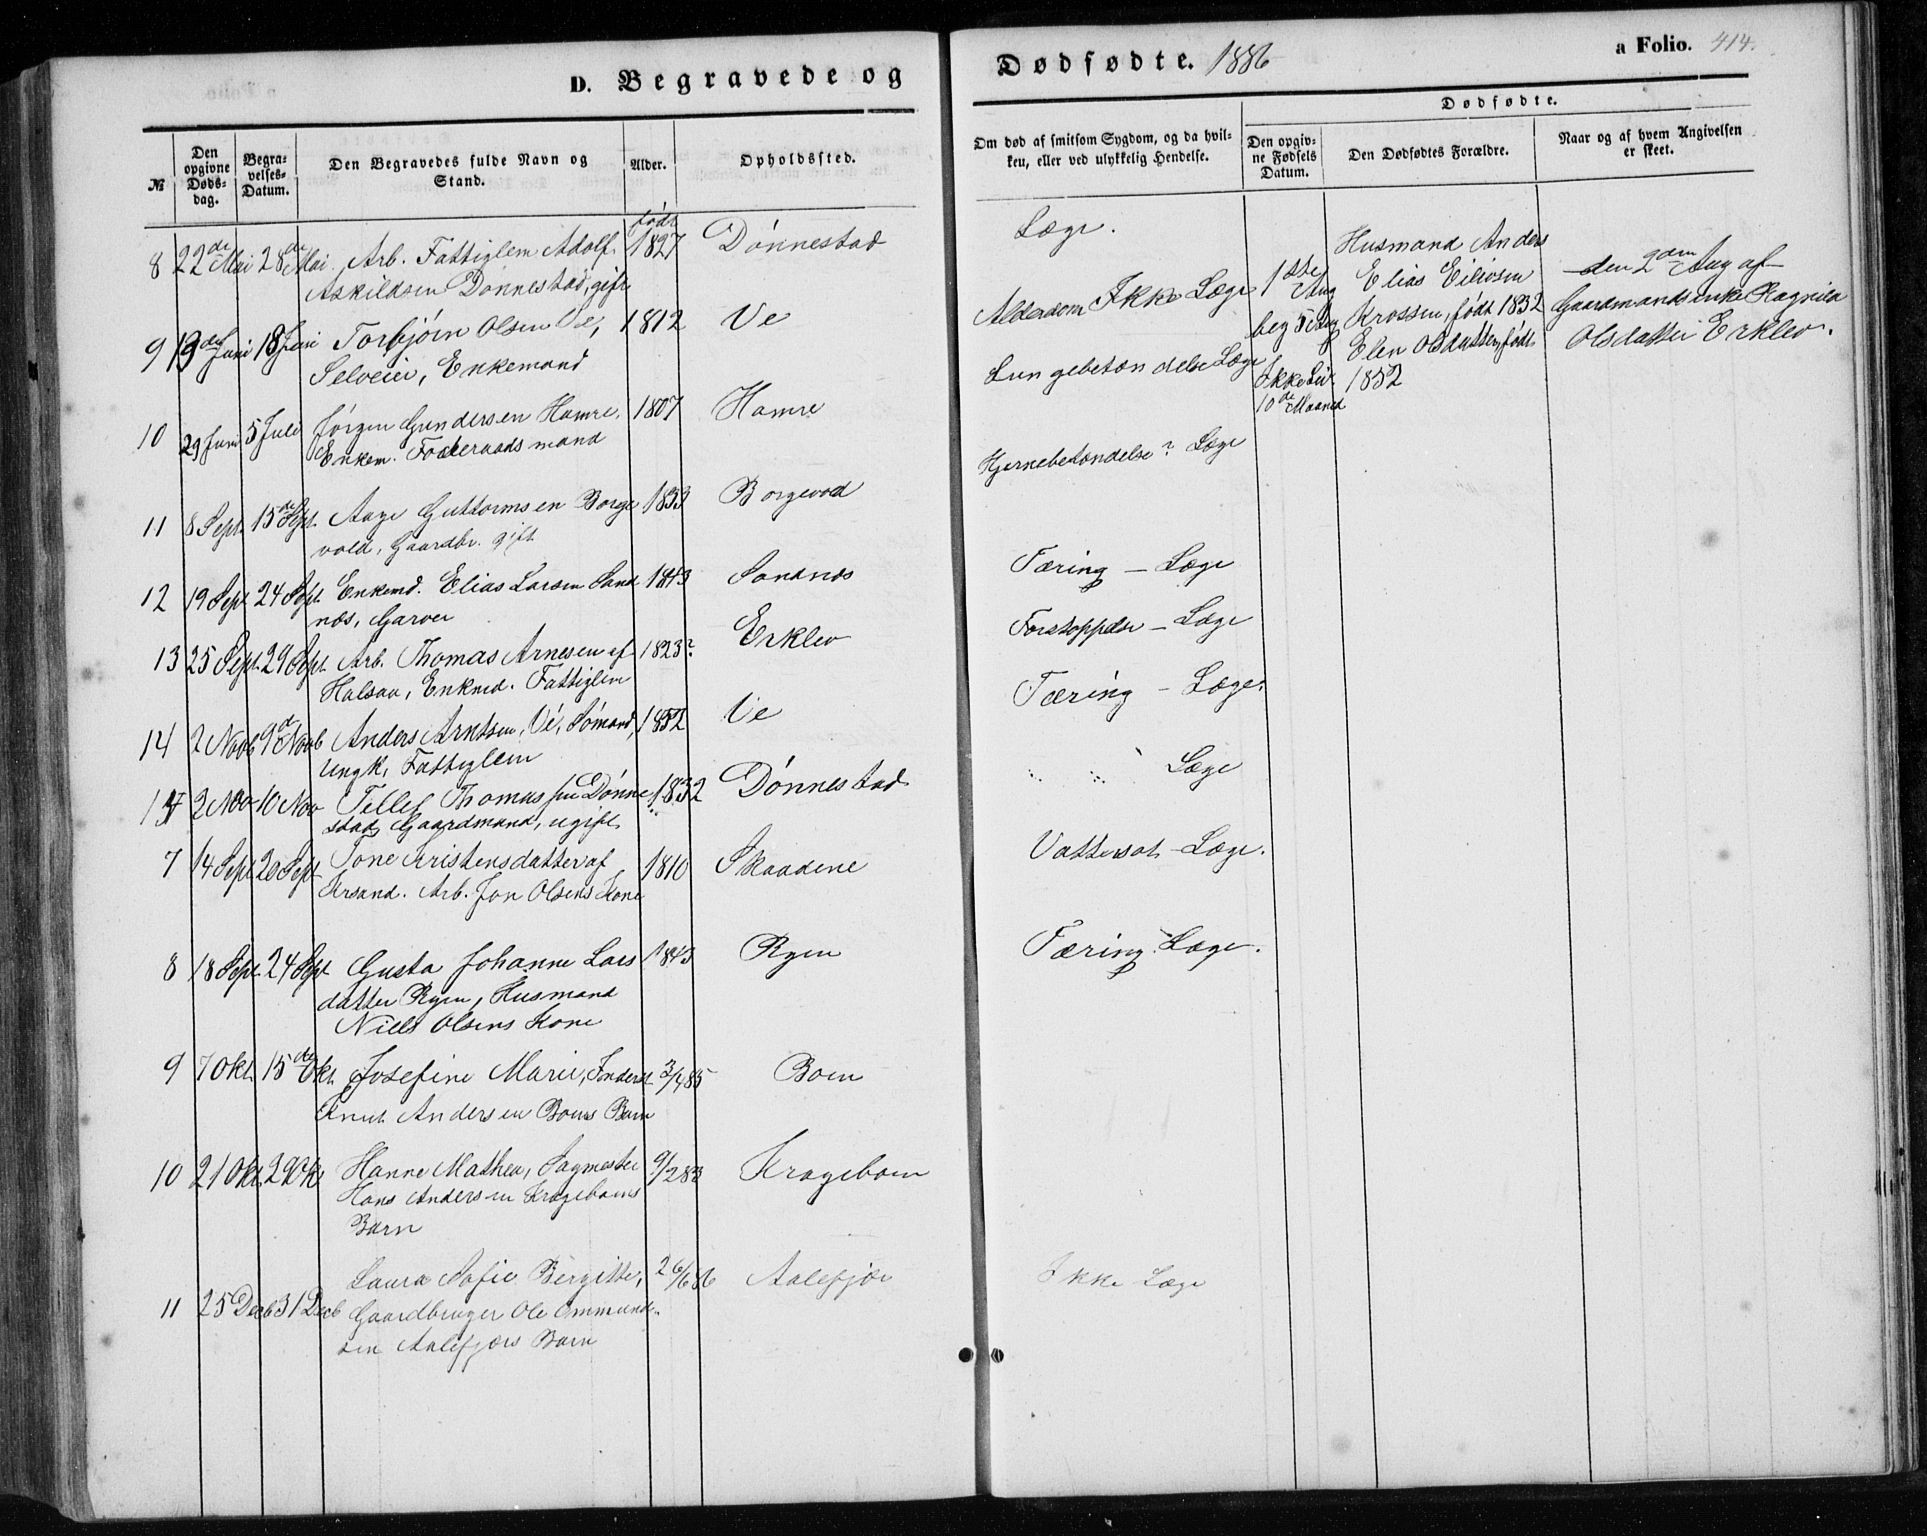 D. Begravede og
Dødfødte. 1886
a Folio. 414.
№
Den opgivne Døds-dag.
Begra-velses-Datum.
Den Begravedes fulde Navn og Stand.
Alder.
Opholdssted.
Om død af smitsom Sygdom, og da hvil-
ken, eller ved ulykkelig Hendelse.
Dødfødte.
Den opgiv-ne Fødsels Datum.
Den Dødfødtes Forældre.
Naar og af hvem Angivelsen er skeet.
født
8 22de Mai 28de Mai Arb. Fattiglem Adolf 1827 Dønnestad Læge.
Askildsen Dønnestad, gift
9 13de Juni 18 Juni Torbjørn Olsen Ve, 1812 Ve Alderdom Ikke Læge
Selveier, Enkemand
10 29 Juni 5 Juli Jørgen Gundersen Hamre, 1807 Hamre Lungebetændelse Læge
Enkem. Foderaadsmand
11 8 Sept. 15de Sept. Aage Guttormsen Borge 1833 Borgevod Hjernebetændelse? Læge
vold, Gaardbr. gift
12 19 Sept 24 Sept. Enkemd. Elias Larsen Sand 1843 Sandnæs Tæring – Læge
næs, Garver
13 25 Sept. 29 Sept. Arb. Thomas Arnesen af 1823? Erklev Forstoppelse – Læge
Halsaa, Enkmd. Fattiglem
14 2 Novb 9de Novb Anders Arntsen, Ve, Sømand, 1852 Ve Tæring – Læge.
Ungk. Fattiglem
2 Nov 10 Nov Tellef Thomassen Dønne 1832 Dønnestad " " Læge
stad, Gaardmand, ugift
7 14 Sept 20 Sept Tone Kristensdatter af 1810 Skaadene Vattersot – Læge.
Krsand. Arb. Jon Olsens Kone
8 18 Sept. 24 Sept Gusta Johanne Lars 1843 Ryen Tæring. Læge.
datter Ryen, Husmand
Niels Olsens Kone
9 7 Okt. 15de Okt. Josefine Marie, Inderst 3/4 85 Boen
Knut Andersen Boens Barn
10 21 Okt. 29 Okt Hanne Mathea, Sagmester 9/2 83 Krageboen
Hans Andersen Krageboens
Barn
11 25 Decb 31 Decb Laura Sofie Bergitte, 26/6 86 Aalefjær Ikke Læge
Gaardbruger Ole Ommund-
sen Aalefjærs Barn
1ste Aug
beg 5 Aug
Ikke Liv.
10de Maaned
Husmand Anders
Elias Eilivsen
Krossen, født 1832
Elen Olsdatter, født
1852
den 2den Aug af
Gaardmandsenke Ragnild
Olsdatter Erklev.